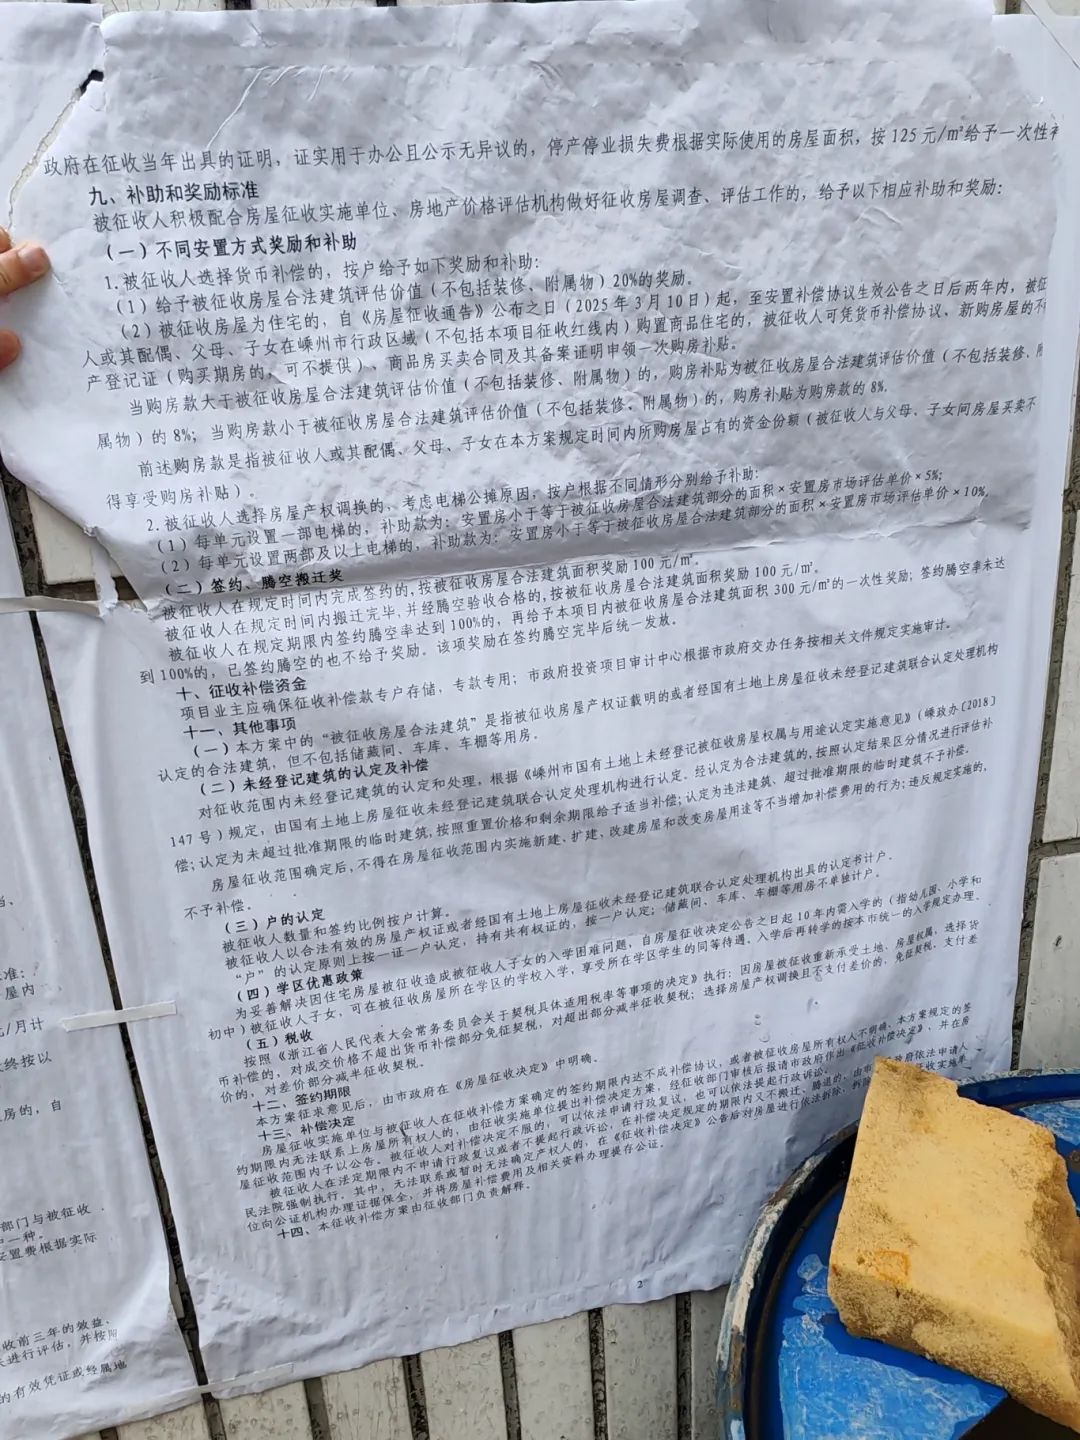 政府在征收当年出具的证明，证实用于办公且公示无异议的，停产停业损失费根据实际使用的房屋面积，按125元/㎡给予一次性补
九、补助和奖励标准
被征收人积极配合房屋征收实施单位、房地产价格评估机构做好征收房屋调查、评估工作的，给予以下相应补助和奖励：
（一）不同安置方式奖励和补助
1.被征收人选择货币补偿的，按户给予如下奖励和补助：
（1）给予被征收房屋合法建筑评估价值（不包括装修、附属物）20%的奖励。
（2）被征收房屋为住宅的，自《房屋征收通告》公布之日（2025年3月10日）起，至安置补偿协议生效公告之日后两年内，被征
人或其配偶、父母、子女在嵊州市行政区域（不包括本项目征收红线内）购置商品住宅的，被征收人可凭货币补偿协议、新购房屋的不
产登记证（购买期房的，可不提供）、商品房买卖合同及其备案证明申领一次购房补贴。
当购房款大于被征收房屋合法建筑评估价值（不包括装修、附属物）的，购房补贴为被征收房屋合法建筑评估价值（不包括装修、附
属物）的8%；当购房款小于被征收房屋合法建筑评估价值（不包括装修、附属物）的，购房补贴为购房款的8%。
前述购房款是指被征收人或其配偶、父母、子女在本方案规定时间内所购房屋占有的资金份额（被征收人与父母、子女间房屋买卖不
得享受购房补贴）。
2.被征收人选择房屋产权调换的，考虑电梯公摊原因，按户根据不同情形分别给予补助：
（1）每单元设置一部电梯的，补助款为：安置房小于等于被征收房屋合法建筑部分的面积×安置房市场评估单价×5%；
（2）每单元设置两部及以上电梯的，补助款为：安置房小于等于被征收房屋合法建筑部分的面积×安置房市场评估单价×10%。
（二）签约、腾空搬迁奖
被征收人在规定时间内完成签约的，按被征收房屋合法建筑面积奖励100元/㎡。
被征收人在规定时间内搬迁完毕，并经腾空验收合格的，按被征收房屋合法建筑面积奖励100元/㎡。
被征收人在规定期限内签约腾空率达到100%的，再给予本项目内被征收房屋合法建筑面积300元/㎡的一次性奖励；签约腾空率未达
到100%的，已签约腾空的也不给予奖励。该项奖励在签约腾空完毕后统一发放。
十、征收补偿资金
项目业主应确保征收补偿款专户存储，专款专用；市政府投资项目审计中心根据市政府交办任务按相关文件规定实施审计。
十一、其他事项
（一）本方案中的“被征收房屋合法建筑”是指被征收房屋产权证载明的或者经国有土地上房屋征收未经登记建筑联合认定处理机构
认定的合法建筑，但不包括储藏间、车库、车棚等用房。
（二）未经登记建筑的认定及补偿
对征收范围内未经登记建筑的认定和处理，根据《嵊州市国有土地上未经登记被征收房屋权属与用途认定实施意见》（嵊政办〔2018〕
147号）规定，由国有土地上房屋征收未经登记建筑联合认定处理机构进行认定。经认定为合法建筑的，按照认定结果区分情况进行评估补
偿；认定为未超过批准期限的临时建筑，按照重置价格和剩余期限给予适当补偿；认定为违法建筑、超过批准期限的临时建筑不予补偿。
房屋征收范围确定后，不得在房屋征收范围内实施新建、扩建、改建房屋和改变房屋用途等不当增加补偿费用的行为；违反规定实施的，
不予补偿。
（三）户的认定
被征收人数量和签约比例按户计算。
被征收人以合法有效的房屋产权证或者经国有土地上房屋征收未经登记建筑联合认定处理机构出具的认定书计户。
“户”的认定原则上按一证一户认定，持有共有权证的，按一户认定；储藏间、车库、车棚等用房不单独计户。
（四）学区优惠政策
为妥善解决因住宅房屋被征收造成被征收人子女的入学困难问题，自房屋征收决定公告之日起10年内需入学的（指幼儿园、小学和
初中）被征收人子女，可在被征收房屋所在学区的学校入学，享受所在学区学生的同等待遇。入学后再转学的按本市统一的入学规定办理。
（五）税收
按照《浙江省人民代表大会常务委员会关于契税具体适用税率等事项的决定》执行：因房屋被征收重新承受土地、房屋权属，选择货
币补偿的，对成交价格不超出货币补偿部分免征契税，对超出部分减半征收契税；选择房屋产权调换且不支付差价的，免征契税，支付差
价的，对差价部分减半征收契税。
十二、签约期限
本方案征求意见后，由市政府在《房屋征收决定》中明确。
十三、补偿决定
房屋征收实施单位与被征收人在征收补偿方案确定的签约期限内达不成补偿协议，或者被征收房屋所有权人不明确、本方案规定的签
约期限内无法联系上房屋所有权人的，由征收实施单位提出补偿决定方案，经征收部门审核后报请市政府作出《征收补偿决定》，并在房
屋征收范围内予以公告。被征收人对补偿决定不服的，可以依法申请行政复议，也可以依法提起行政诉讼。
被征收人在法定期限内不申请行政复议或者不提起行政诉讼，在补偿决定规定的期限内又不搬迁、腾退的，由市政府依法申请人
民法院强制执行。其中，无法联系或暂时无法确定产权人的，在《征收补偿决定》公告后对房屋进行依法拆除，拆除 征收实施单
位向公证机构办理证据保全，并将房屋补偿费用及相关资料办理提存公证。
十四、本征收补偿方案由征收部门负责解释。
2
准：
屋内
元/月计
终按以
房的，自
部门与被征收
户一种。
安置费根据实际
收前三年的效益、
进行评估，并按照
的有效凭证或经属地